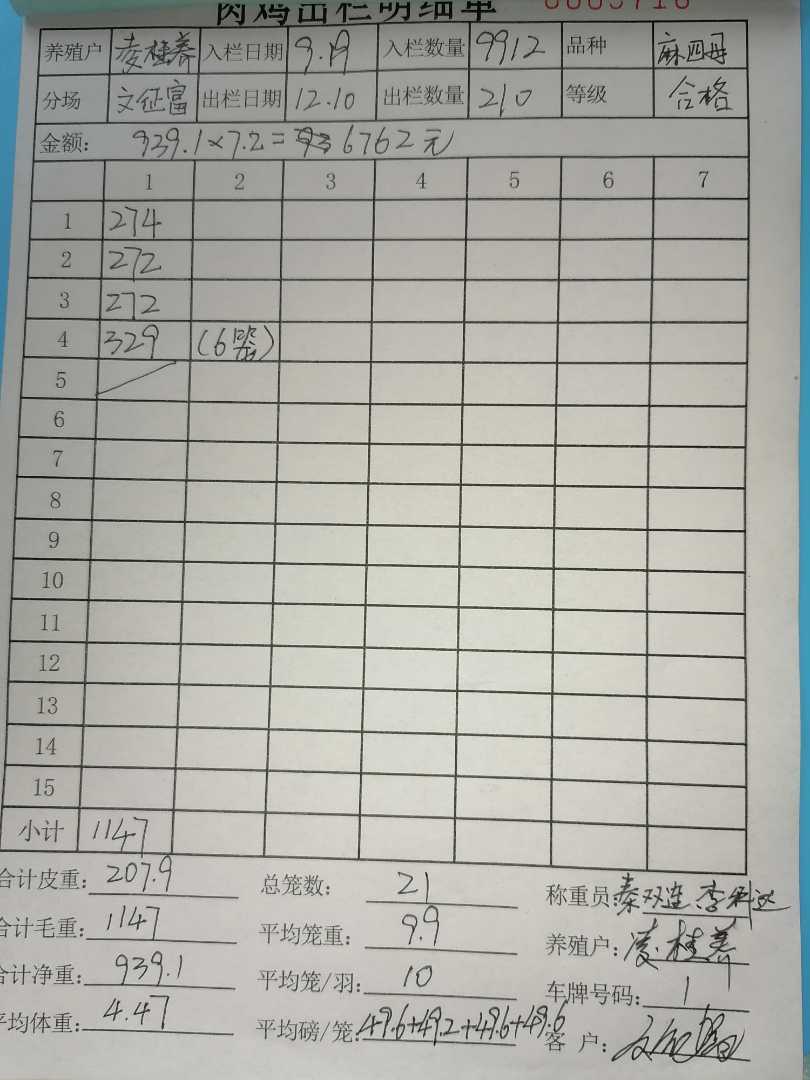 肉鸡出栏明细单
养殖户 凌桂养 入栏日期 9.19 入栏数量 9912 品种 麻四母
分场 文征富 出栏日期 12.10 出栏数量 210 等级 合格
金额: 939.1×7.2= 6762元
1 2 3 4 5 6 7
1 274
2 272
3 272
4 329 (6笼)
5
6
7
8
9
10
11
12
13
14
15
小计 1147
合计皮重: 207.9 总笼数: 21 称重员: 秦双连
合计毛重: 1147 平均笼重: 9.9 养殖户: 凌桂养
合计净重: 939.1 平均笼/羽: 10 车牌号码: 1
平均体重: 4.47 平均磅/笼: 49.6+49.2+49.6+49.6 客 户: